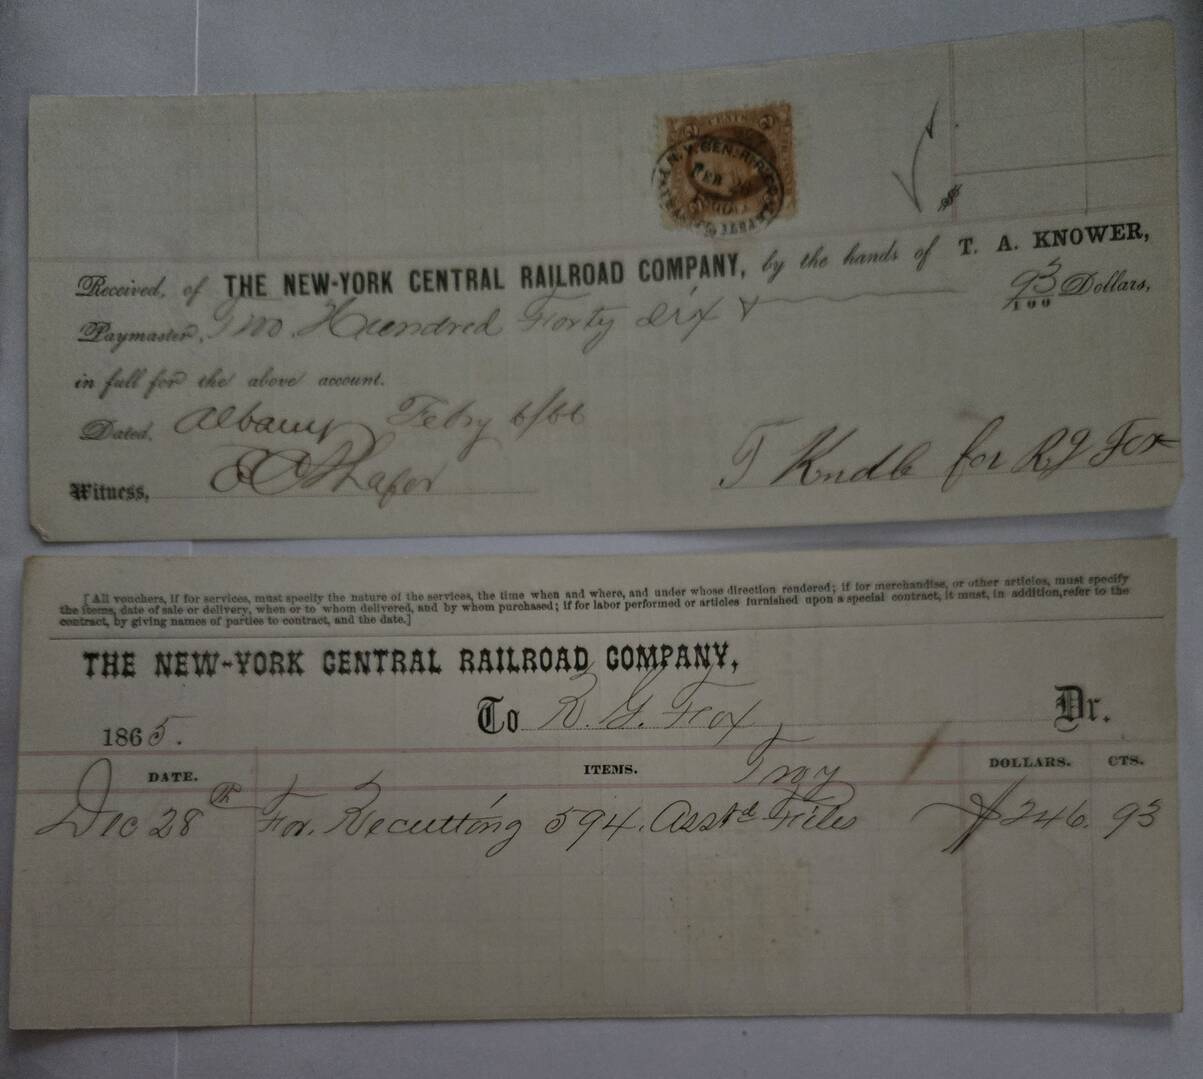 2 CENTS 2
N.Y. CEN. R.R. CO. ALBANY
FEB
Received, of THE NEW-YORK CENTRAL RAILROAD COMPANY, by the hands of T. A. KNOWER,
Paymaster, Two Hundred Forty Six & 93/100 Dollars,
in full for the above account.
Dated, Albany Feby 6/66
Witness,
for R G Fox
[All vouchers, if for services, must specify the nature of the services, the time when and where, and under whose direction rendered; if for merchandise, or other articles, must specify
the items, date of sale or delivery, when or to whom delivered, and by whom purchased; if for labor performed or articles furnished upon a special contract, it must, in addition, refer to the
contract, by giving names of parties to contract, and the date.]
THE NEW-YORK CENTRAL RAILROAD COMPANY,
1865. To R. G. Fox, Dr.
Troy
DATE. ITEMS. DOLLARS. CTS.
Dec 28th For Recutting 594. Asstd Files $246. 93